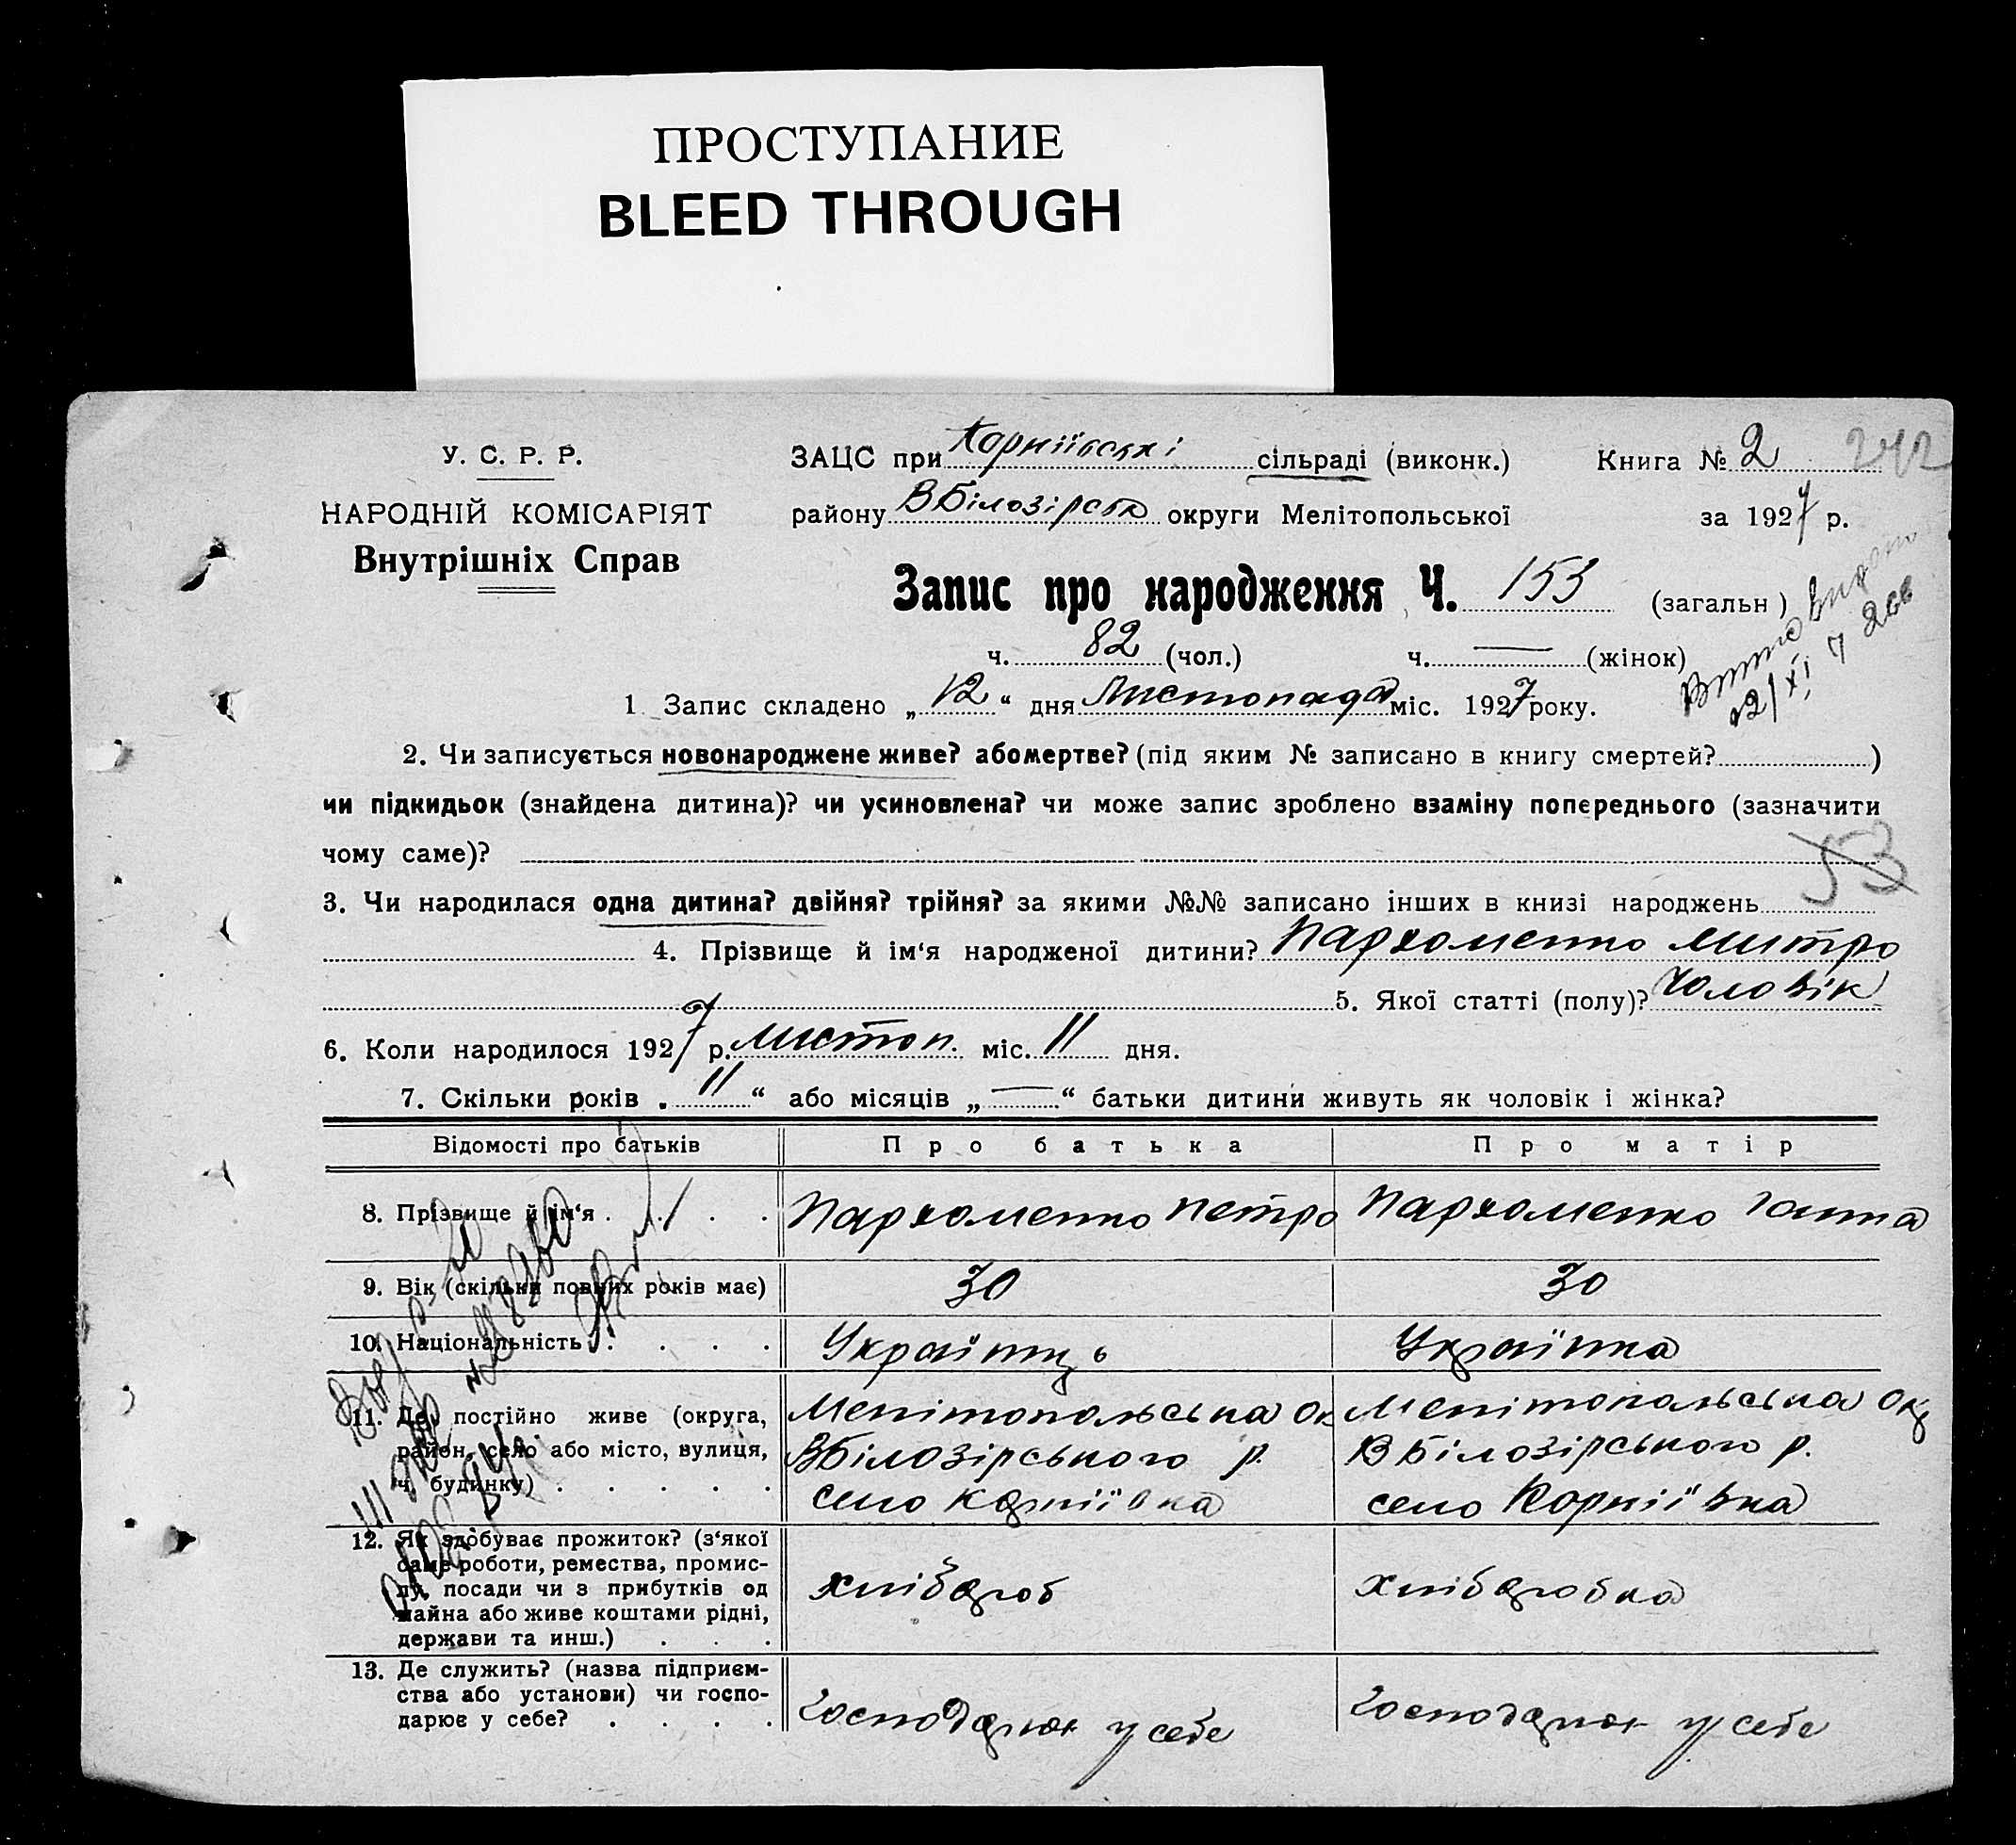 ПРОСТУПАНИЕ
BLEED THROUGH
У. С. Р. Р.
НАРОДНІЙ КОМІСАРІЯТ
Внутрішніх Справ
ЗАЦС при Корніївскі сільраді (виконк.)
Книга № 2 242
району ВБілозірськ округи Мелітопольської
за 1927 р.
Запис про народження Ч. 153 (загальн)
ч. 82 (чол.) ч. — (жінок)
12/XI 7
1. Запис складено „12“ дня Листопада міс. 1927 року.
2. Чи записується новонароджене живе? або мертве? (під яким № записано в книгу смертей? )
чи підкидьок (знайдена дитина)? чи усиновлена? чи може запис зроблено взаміну попереднього (зазначити
чому саме)?
53
3. Чи народилася одна дитина? двійня? трійня? за якими №№ записано інших в книзі народжень
4. Прізвище й ім‘я народженої дитини? Пархоменко Митро
5. Якої статті (полу)? Чоловік
6. Коли народилося 1927 р. листоп. міс. 11 дня.
7. Скільки років „11“ або місяців „—“ батьки дитини живуть як чоловік і жінка?
Відомості про батьків Про батька Про матір
8. Прізвище й ім‘я . . . . Пархоменко Петро Пархоменко Ганна
9. Вік (скільки повних років має) 30 30
10. Національність . . . . Українць Українка
11. Де постійно живе (округа, Мелітопольська Ок Мелітопольська Окр
район, село або місто, вулиця, ВБілозірського р. ВБілозірського р.
ч. будинку) . . . . . село Корніївка село Корніївка
12. Як здобуває прожиток? (з‘якої
саме роботи, ремества, промис-
лу, посади чи з прибутків од хлібороб хліборобка
майна або живе коштами рідні,
держави та инш.) . . .
13. Де служить? (назва підприєм-
ства або установи) чи госпо-
дарює у себе? . . . . Господарює у себе Господарює у себе